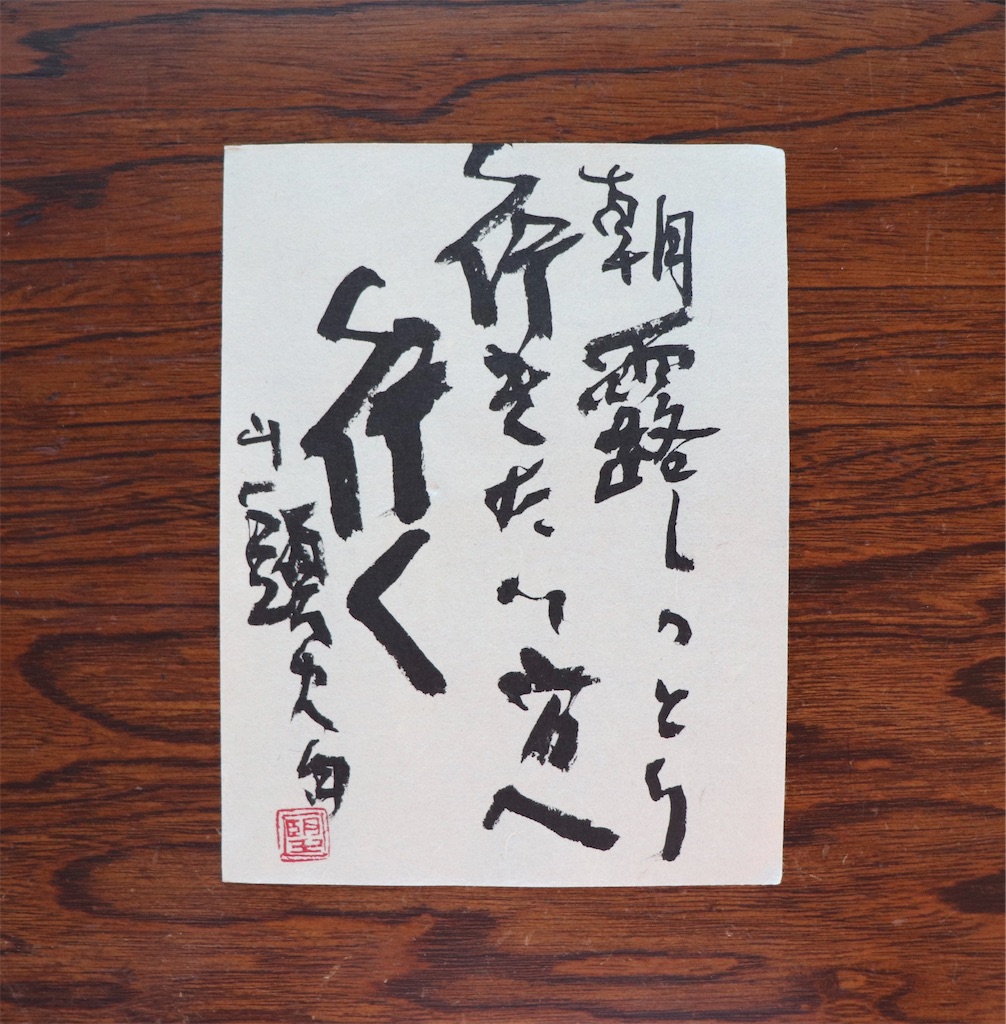 朝露しつとり
行きたい方へ
行く
山頭火句